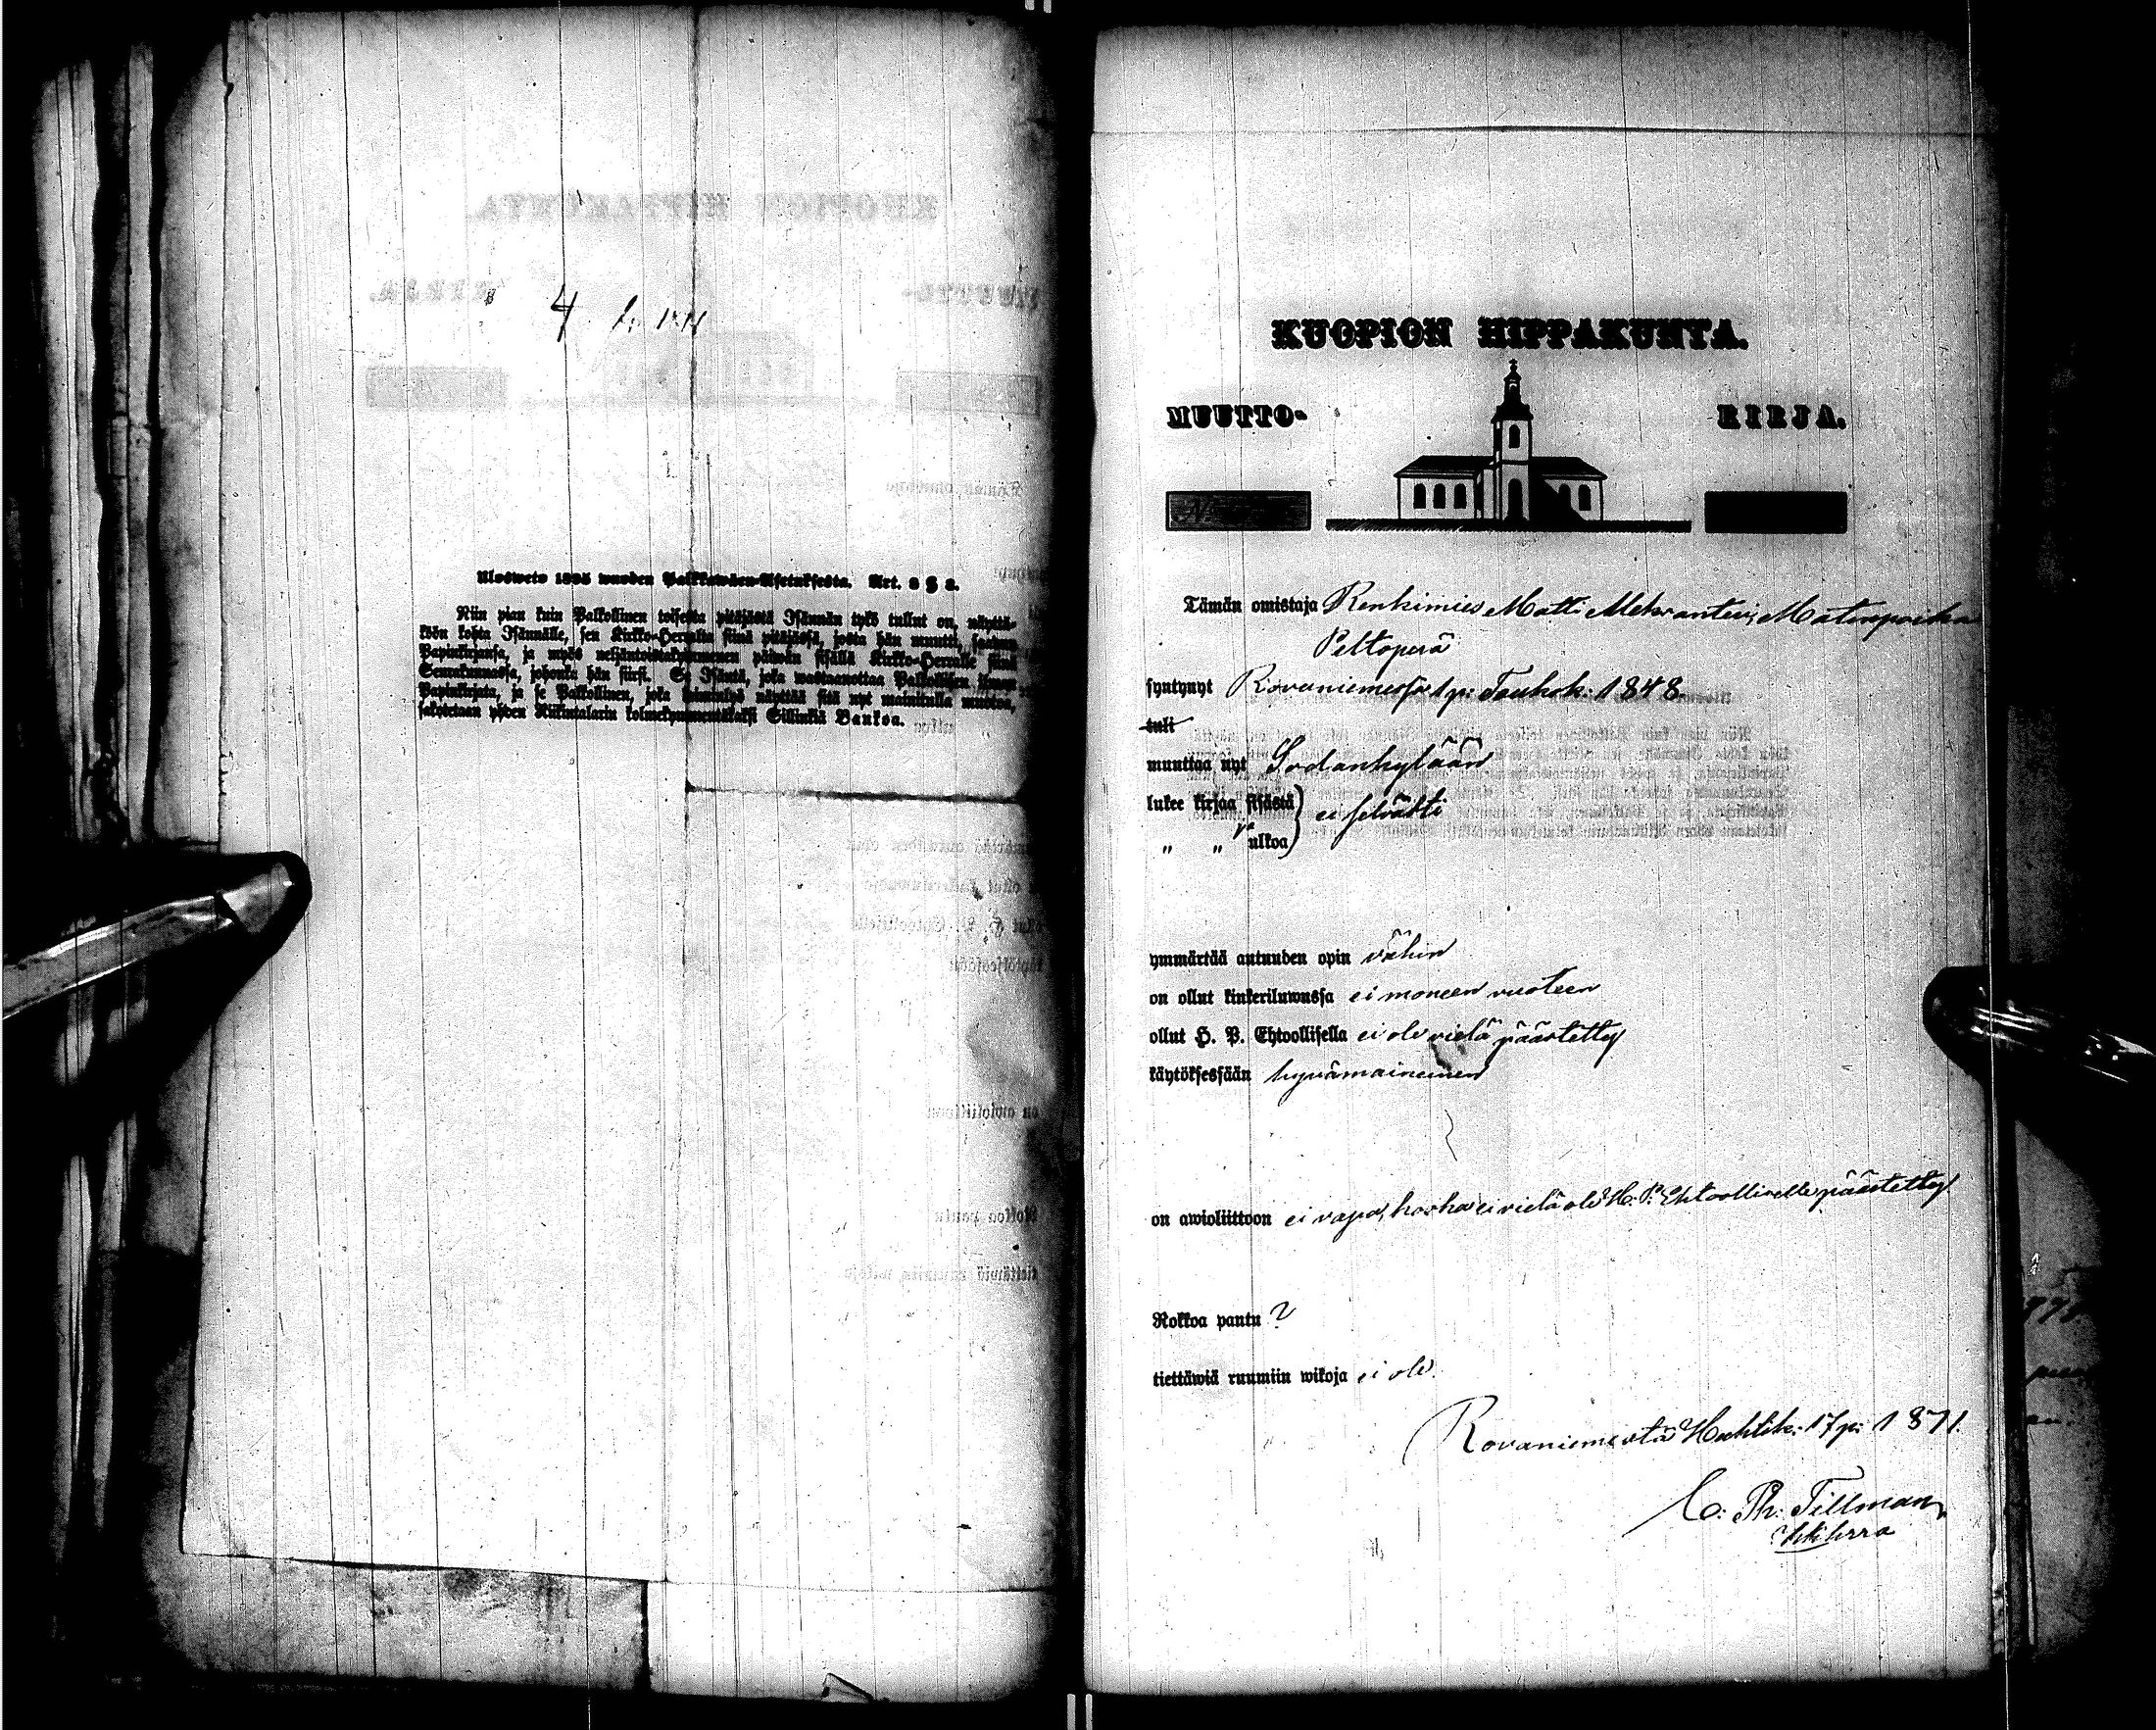 4
Ulosweto 1805 wuoden Palkkawäen-Asetuksesta. Art. 8 § 2.
Niin pian kuin Palkollinen toisesta pitäjästä Isännän tykö tullut on, näyttä-
köön kohta Isännälle, sen Kirkko-Herralta siinä pitäjässä, josta hän muutti, saadun
Papinkirjansa, ja myös neljäntoistakymmenen päivän sisällä Kirkko-Herralle siinä
Seurakunnassa, johonka hän siirsi. Se Isäntä, joka wastaanottaa Palkollisen ilman
Papinkirjata, ja se Palkollinen, joka laiminlyö näyttää sitä nyt mainitulla muotoa,
sakotetaan yhden Riikintalarin kolmekymmentäkaksi Sillinkiä Bankoa.
KUOPION HIPPAKUNTA.
MUUTTO- KIRJA.
N:
Tämän omistaja Renkimies Matti Matinpoika
Peltoperä
syntynyt Rovaniemessa 1 p: Toukok: 1848.
tuli
muuttaa nyt Sodankylään
lukee kirjaa sisästä } ei selvästi
„ „ ulkoa
ymmärtää autuuden opin vähin
on ollut kinkeriluwussa ei moneen vuoteen
ollut H. P. Ehtoollisella ei ole vielä päästetty
käytöksessään hyvämaineinen
on awioliittoon ei vapa, koska ei vielä ole H. P. Ehtoolliselle päästetty
Rokkoa pantu ?
tiettäwiä ruumiin wikoja ei ole.
Rovaniemestä Huhtik: 17 p: 1871.
C: Ph: Tillman